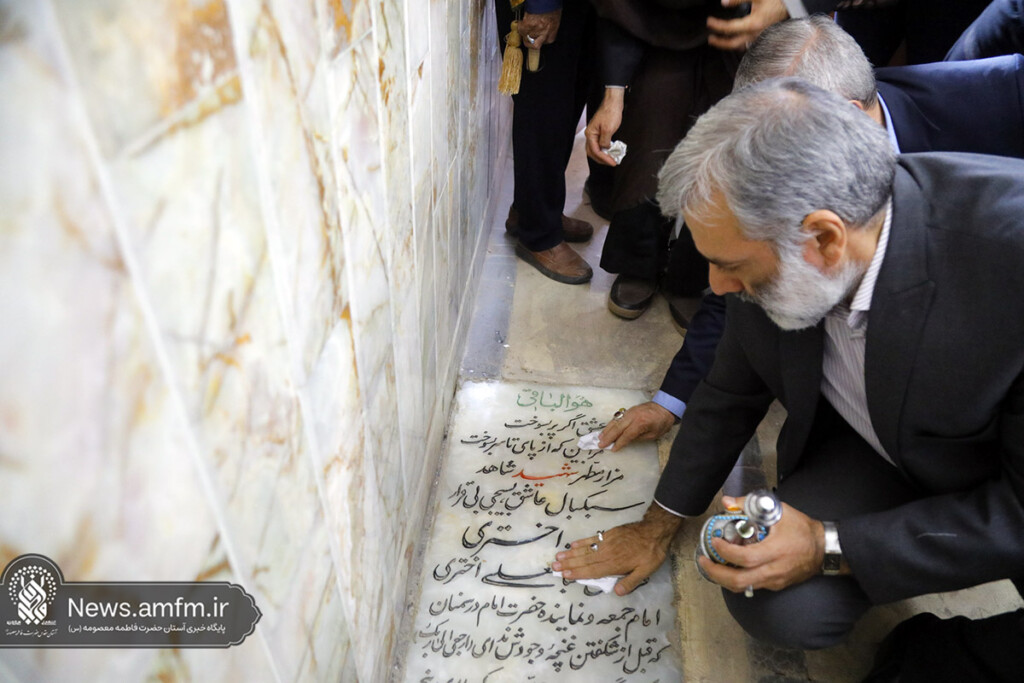 هوالباقی
عشق اگر پر سوخت
که از پای تا سر سوخت
مزار مطهر شهید شاهد
سبکبال عاشق بسیجی بی قرار
اختری
علی اختری
امام جمعه و نماینده حضرت امام در سمنان
که قبل از شکفتن غنچه وجودش ندای ارجعی
News.amfm.ir
پایگاه خبری آستان حضرت فاطمه معصومه (س)